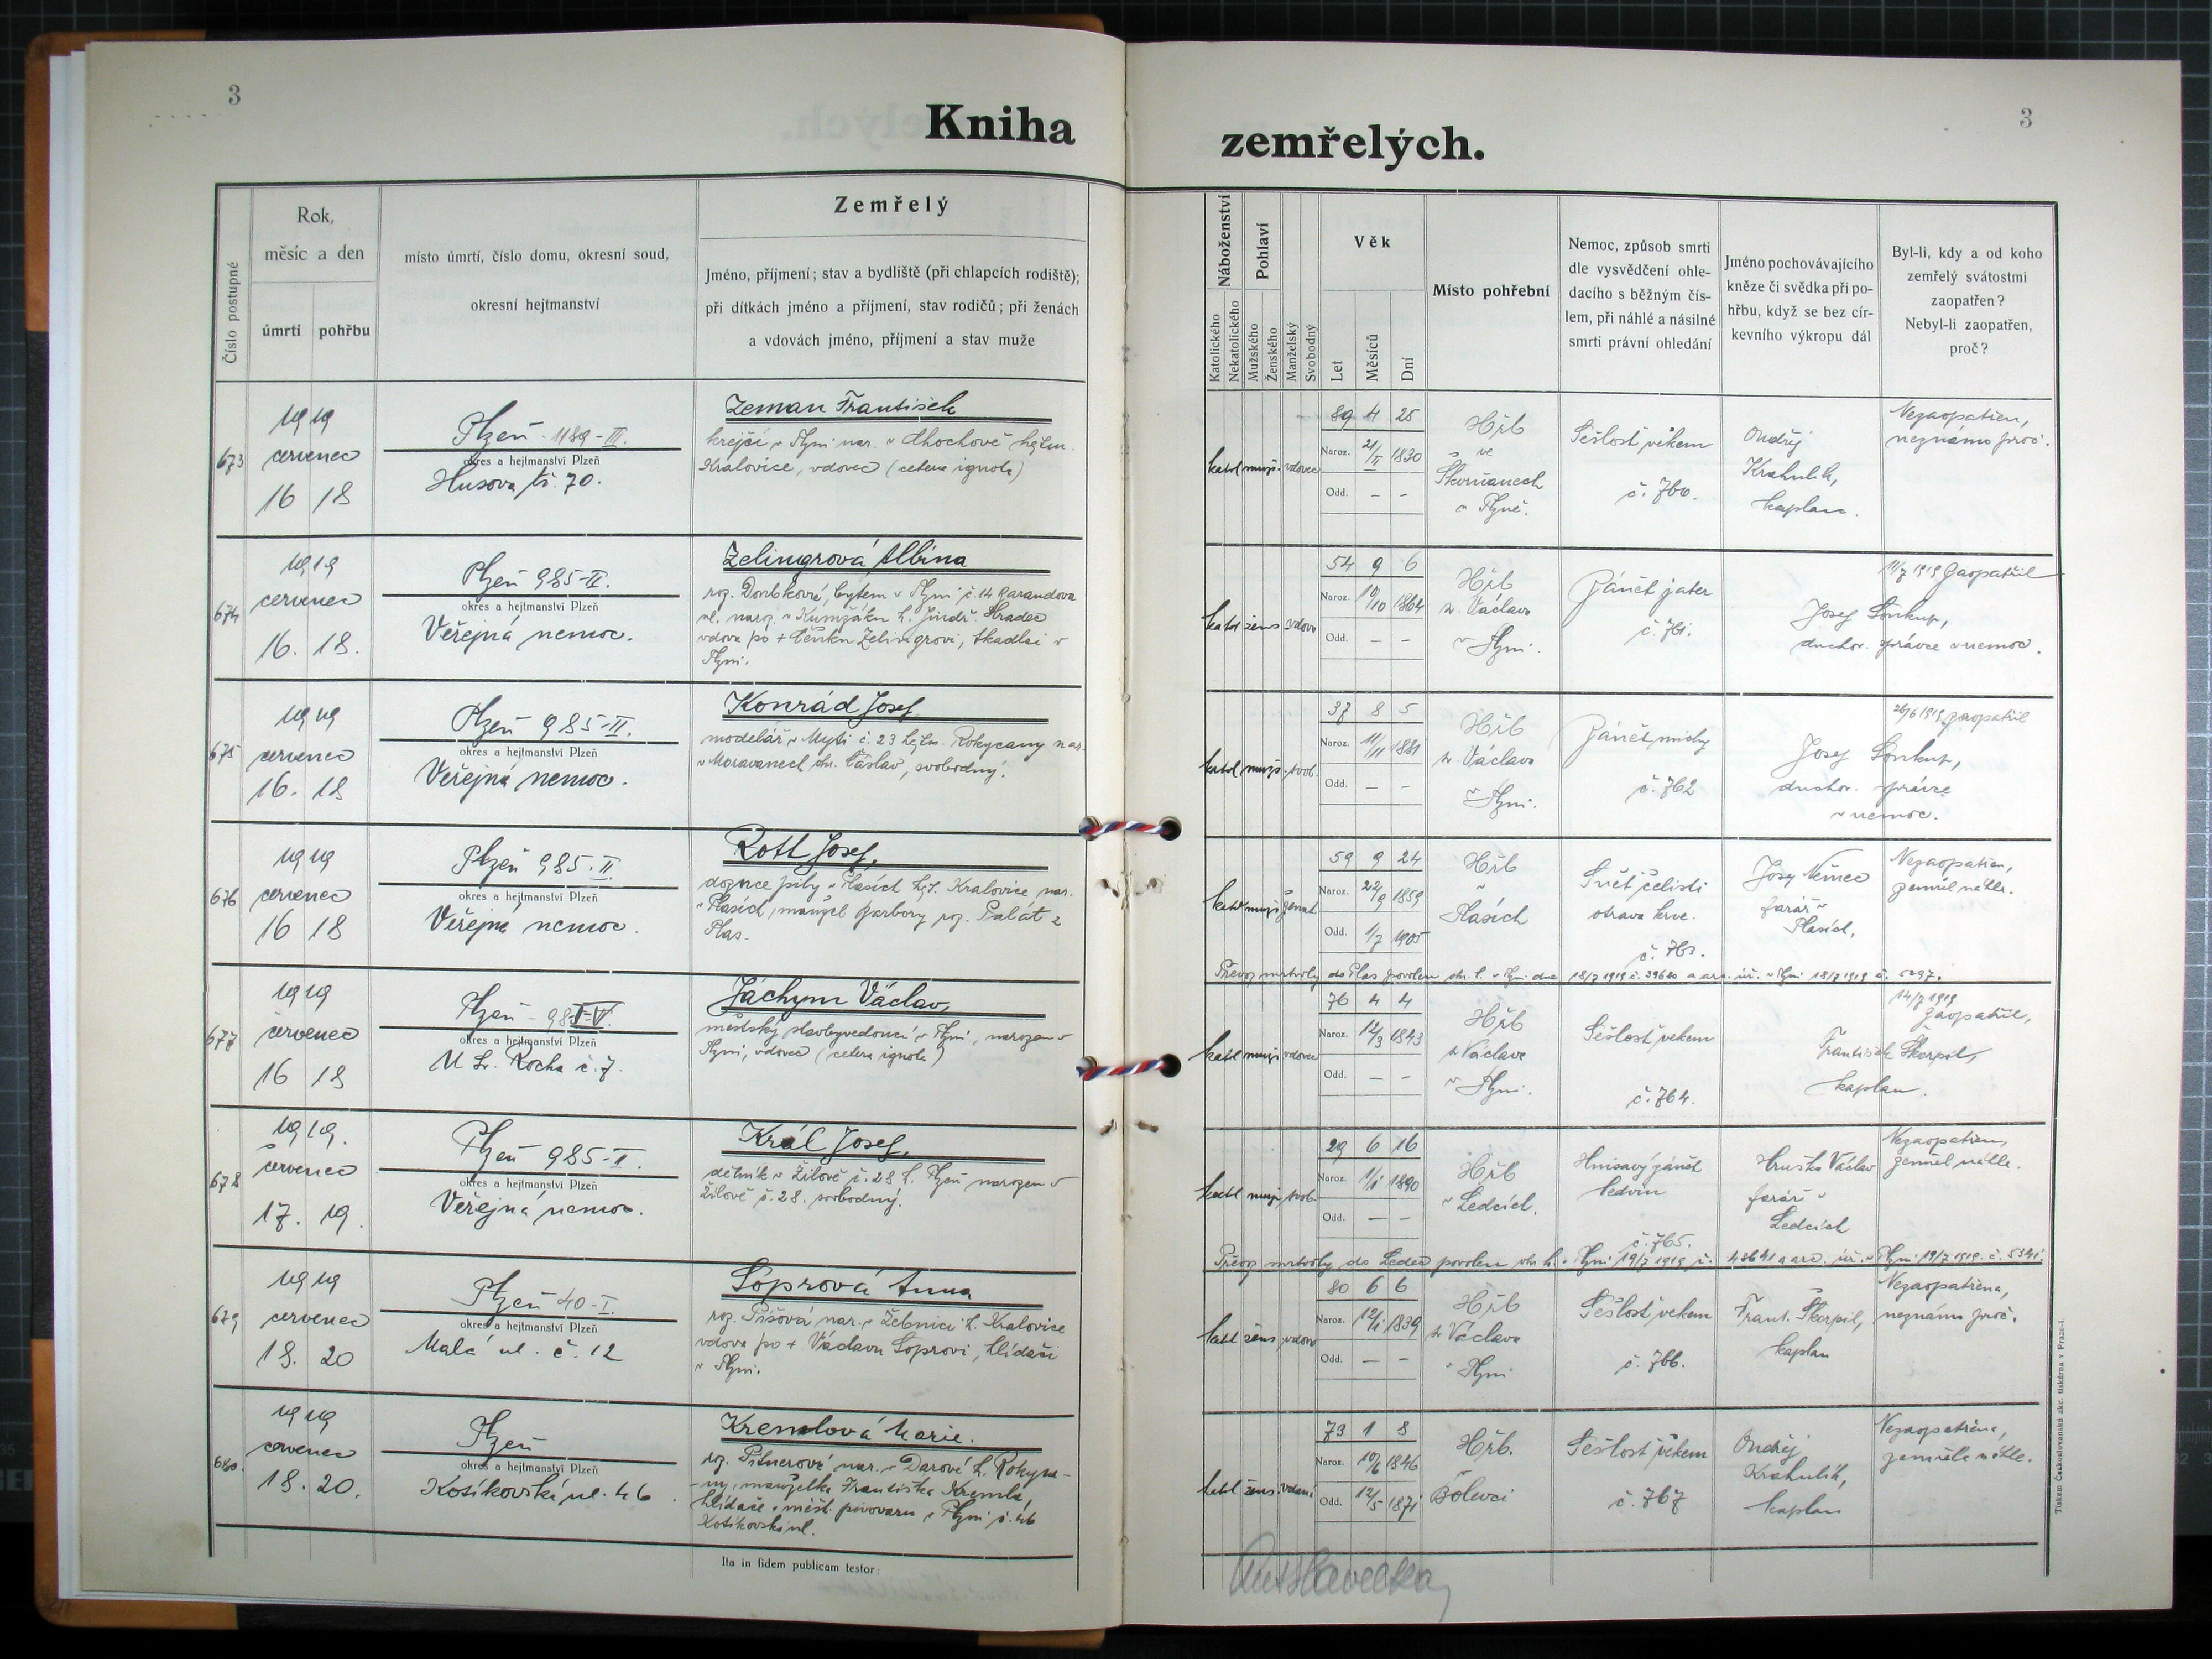 3
3
Kniha
zemřelých.
Číslo postupné
Rok,
měsíc a den
úmrtí
pohřbu
místo úmrtí, číslo domu, okresní soud,
okresní hejtmanství
Zemřelý
Jméno, příjmení; stav a bydliště (při chlapcích rodiště);
při dítkách jméno a příjmení, stav rodičů; při ženách
a vdovách jméno, příjmení a stav muže
Náboženství
Katolického
Nekatolického
Pohlaví
Mužského
Ženského
Manželský
Svobodný
Věk
Let
Měsíců
Dní
Místo pohřební
Nemoc, způsob smrti
dle vysvědčení ohle-
dacího s běžným čís-
lem, při náhlé a násilné
smrti právní ohledání
Jméno pochovávajícího
kněze či svědka při po-
hřbu, když se bez cír-
kevního výkropu dál
Byl-li, kdy a od koho
zemřelý svátostmi
zaopatřen?
Nebyl-li zaopatřen,
proč?
673
1919
červenec
16 18
Plzeň 1189-III.
okres a hejtmanství Plzeň
Husova tř. 70.
Zeman František
krejčí v Plzni nar. v hejtm.
Kralovice, vdovec (cetera ignota)
katol muž. vdovec
89 4 25
Naroz. 21/II 1830
Odd. – –
Hřb
ve
Skvrňanech
u Plzně.
Sešlost věkem
č. 760.
Ondřej
Krahulík,
kaplan.
Nezaopatřen,
neznámo proč.
674
1919
červenec
16. 18.
Plzeň 985-II.
okres a hejtmanství Plzeň
Veřejná nemoc.
Zelingrová Albína
roz. bytem v Plzni č. 14
ul. naroz. v Kunžaku h. Jindř. Hradec
vdova po + Čeňku Zelingrovi, tkadlci v
Plzni.
katol žens vdova
54 9 6
Naroz. 10/10 1864
Odd. – –
Hřb
sv. Václava
v Plzni.
Zánět jater
č. 761.
11/7 1919 Zaopatřil
Josef Soukup,
duchov. správce v nemoc.
675
1919
červenec
16. 18
Plzeň 985-II.
okres a hejtmanství Plzeň
Veřejná nemoc.
Konrád Josef
modelář v Mýtě č. 23 hejtm. Rokycany nar.
v Moravanech okr. Čáslav, svobodný.
katol muž. svob.
37 8 5
Naroz. 11/11 1881
Odd. – –
Hřb
sv. Václava
v Plzni.
Zánět míchy
č. 762
26/6 1919 zaopatřil
Josef Soukup,
duchov. správce
v nemoc.
676
1919
červenec
16 18
Plzeň 985-II.
okres a hejtmanství Plzeň
Veřejná nemoc.
Rott Josef.
dozorce pily v Plasích hejt. Kralovice nar.
v Plasích, manžel Barbory roz. Palát z
Plas.
katol muž ženat
59 9 24
Naroz. 22/9 1859
Odd. 1/7 1905
Hřb
v Plasích
Sněť čelisti
otrava krve.
č. 763.
Josef Němec
farář v
Plasích.
Nezaopatřen,
zemřel náhle.
Převoz mrtvoly do Plas povolen okr. h. v Plzni dne 18/7 1919 č. 39680 a arc. úř. v Plzni 18/7 1919 č. 5297.
677
1919
červenec
16 18
Plzeň
okres a hejtmanství Plzeň
U Sv. Rocha č. 7.
Jáchym Václav,
městský stavbyvedoucí v Plzni, narozen v
Plzni, vdovec (cetera ignota)
katol muž vdovec
76 4 4
Naroz. 12/3 1843
Odd. – –
Hřb
sv Václava
v Plzni.
Sešlost věkem
č. 764.
14/7 1919
Zaopatřil,
František Škorpil,
kaplan.
678
1919.
červenec
17. 19.
Plzeň 985-I.
okres a hejtmanství Plzeň
Veřejná nemoc.
Král Josef.
dělník v Žilově č. 28 h. Plzeň narozen v
Žilově č. 28. svobodný.
katol muž svob.
29 6 16
Naroz. 1/1 1890
Odd. – –
Hřb
v Ledcích.
Hnisavý zánět
ledvin
č. 765.
Hruška Václav
farář v
Ledcích
Nezaopatřen,
zemřel náhle.
Převoz mrtvoly do Ledec povolen okr. h. v Plzni 19/7 1919 č. 48641 a arc. úř. v Plzni 19/7 1919. č. 5341.
679
1919
červenec
18. 20
Plzeň 40-I.
okres a hejtmanství Plzeň
Malá ul. č. 12
Šoprová Anna
roz. Píšová nar. v Žebnici h. Kralovice
vdova po + Václavu Šoprovi, hlídači
v Plzni.
katol žens. vdova
80 6 6
Naroz. 12/1 1839
Odd. – –
Hřb
sv Václava
v Plzni
Sešlost věkem
č. 766.
Frant. Škorpil,
kaplan
Nezaopatřena,
neznámo proč.
680.
1919
červenec
18. 20.
Plzeň
okres a hejtmanství Plzeň
Kotíkovská ul. 46.
Kremlová Marie.
roz. Pitnerová nar. v Darové h. Rokyca-
ny, manželka Františka Kremla,
hlídače v měšť. pivovaru v Plzni č. 46
Kotíkovská ul.
katol žens. vdaná
73 1 8
Naroz. 10/6 1846
Odd. 12/5 1871
Hřb.
Bolevci
Sešlost věkem
č. 767
Ondřej
Krahulík,
kaplan
Nezaopatřena,
zemřela náhle.
Ita in fidem publicam testor:
Tiskem Československá akc. tiskárna v Praze-I.